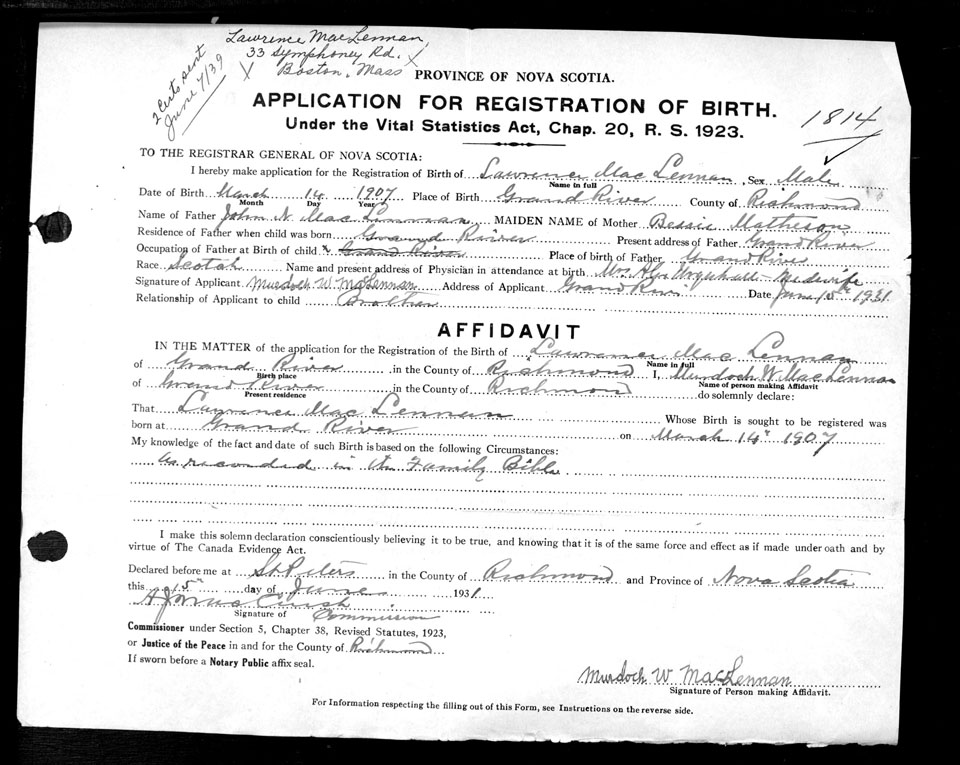 Lawrence MacLennan
33 Symphoney Rd. X
X Boston, Mass
2 Certs sent
June 7/39
PROVINCE OF NOVA SCOTIA.
APPLICATION FOR REGISTRATION OF BIRTH.
Under the Vital Statistics Act, Chap. 20, R. S. 1923.
1814
TO THE REGISTRAR GENERAL OF NOVA SCOTIA:
I hereby make application for the Registration of Birth of Lawrence Mac Lennan, Sex Male
Name in full
Date of Birth March 14 1907 Place of Birth Grand River County of Richmond
Month Day Year
Name of Father John N. Mac Lennan MAIDEN NAME of Mother Bessie Matheson
Residence of Father when child was born Grand River Present address of Father Grand River
Occupation of Father at Birth of child Grand River Place of birth of Father Grand River
Race Scotch Name and present address of Physician in attendance at birth Mrs. Alex Urquhart - Midwife
Signature of Applicant Murdoch W. MacLennan Address of Applicant Grand River Date June 15th 1931
Relationship of Applicant to child Brother
AFFIDAVIT
IN THE MATTER of the application for the Registration of the Birth of Lawrence Mac Lennan
Name in full
of Grand River in the County of Richmond I, Murdoch W. MacLennan
Birth place Name of person making Affidavit
of Grand River in the County of Richmond do solemnly declare:
Present residence
That Lawrence Mac Lennan Whose Birth is sought to be registered was
born at Grand River on March 14th 1907
My knowledge of the fact and date of such Birth is based on the following Circumstances:
As recorded in the Family Bible
I make this solemn declaration conscientiously believing it to be true, and knowing that it is of the same force and effect as if made under oath and by
virtue of The Canada Evidence Act.
Declared before me at St Peters in the County of Richmond and Province of Nova Scotia
this 15th day of June 1931
Signature of Commission
Commissioner under Section 5, Chapter 38, Revised Statutes, 1923,
or Justice of the Peace in and for the County of Richmond
If sworn before a Notary Public affix seal.
Murdoch W MacLennan
Signature of Person making Affidavit.
For Information respecting the filling out of this Form, see Instructions on the reverse side.